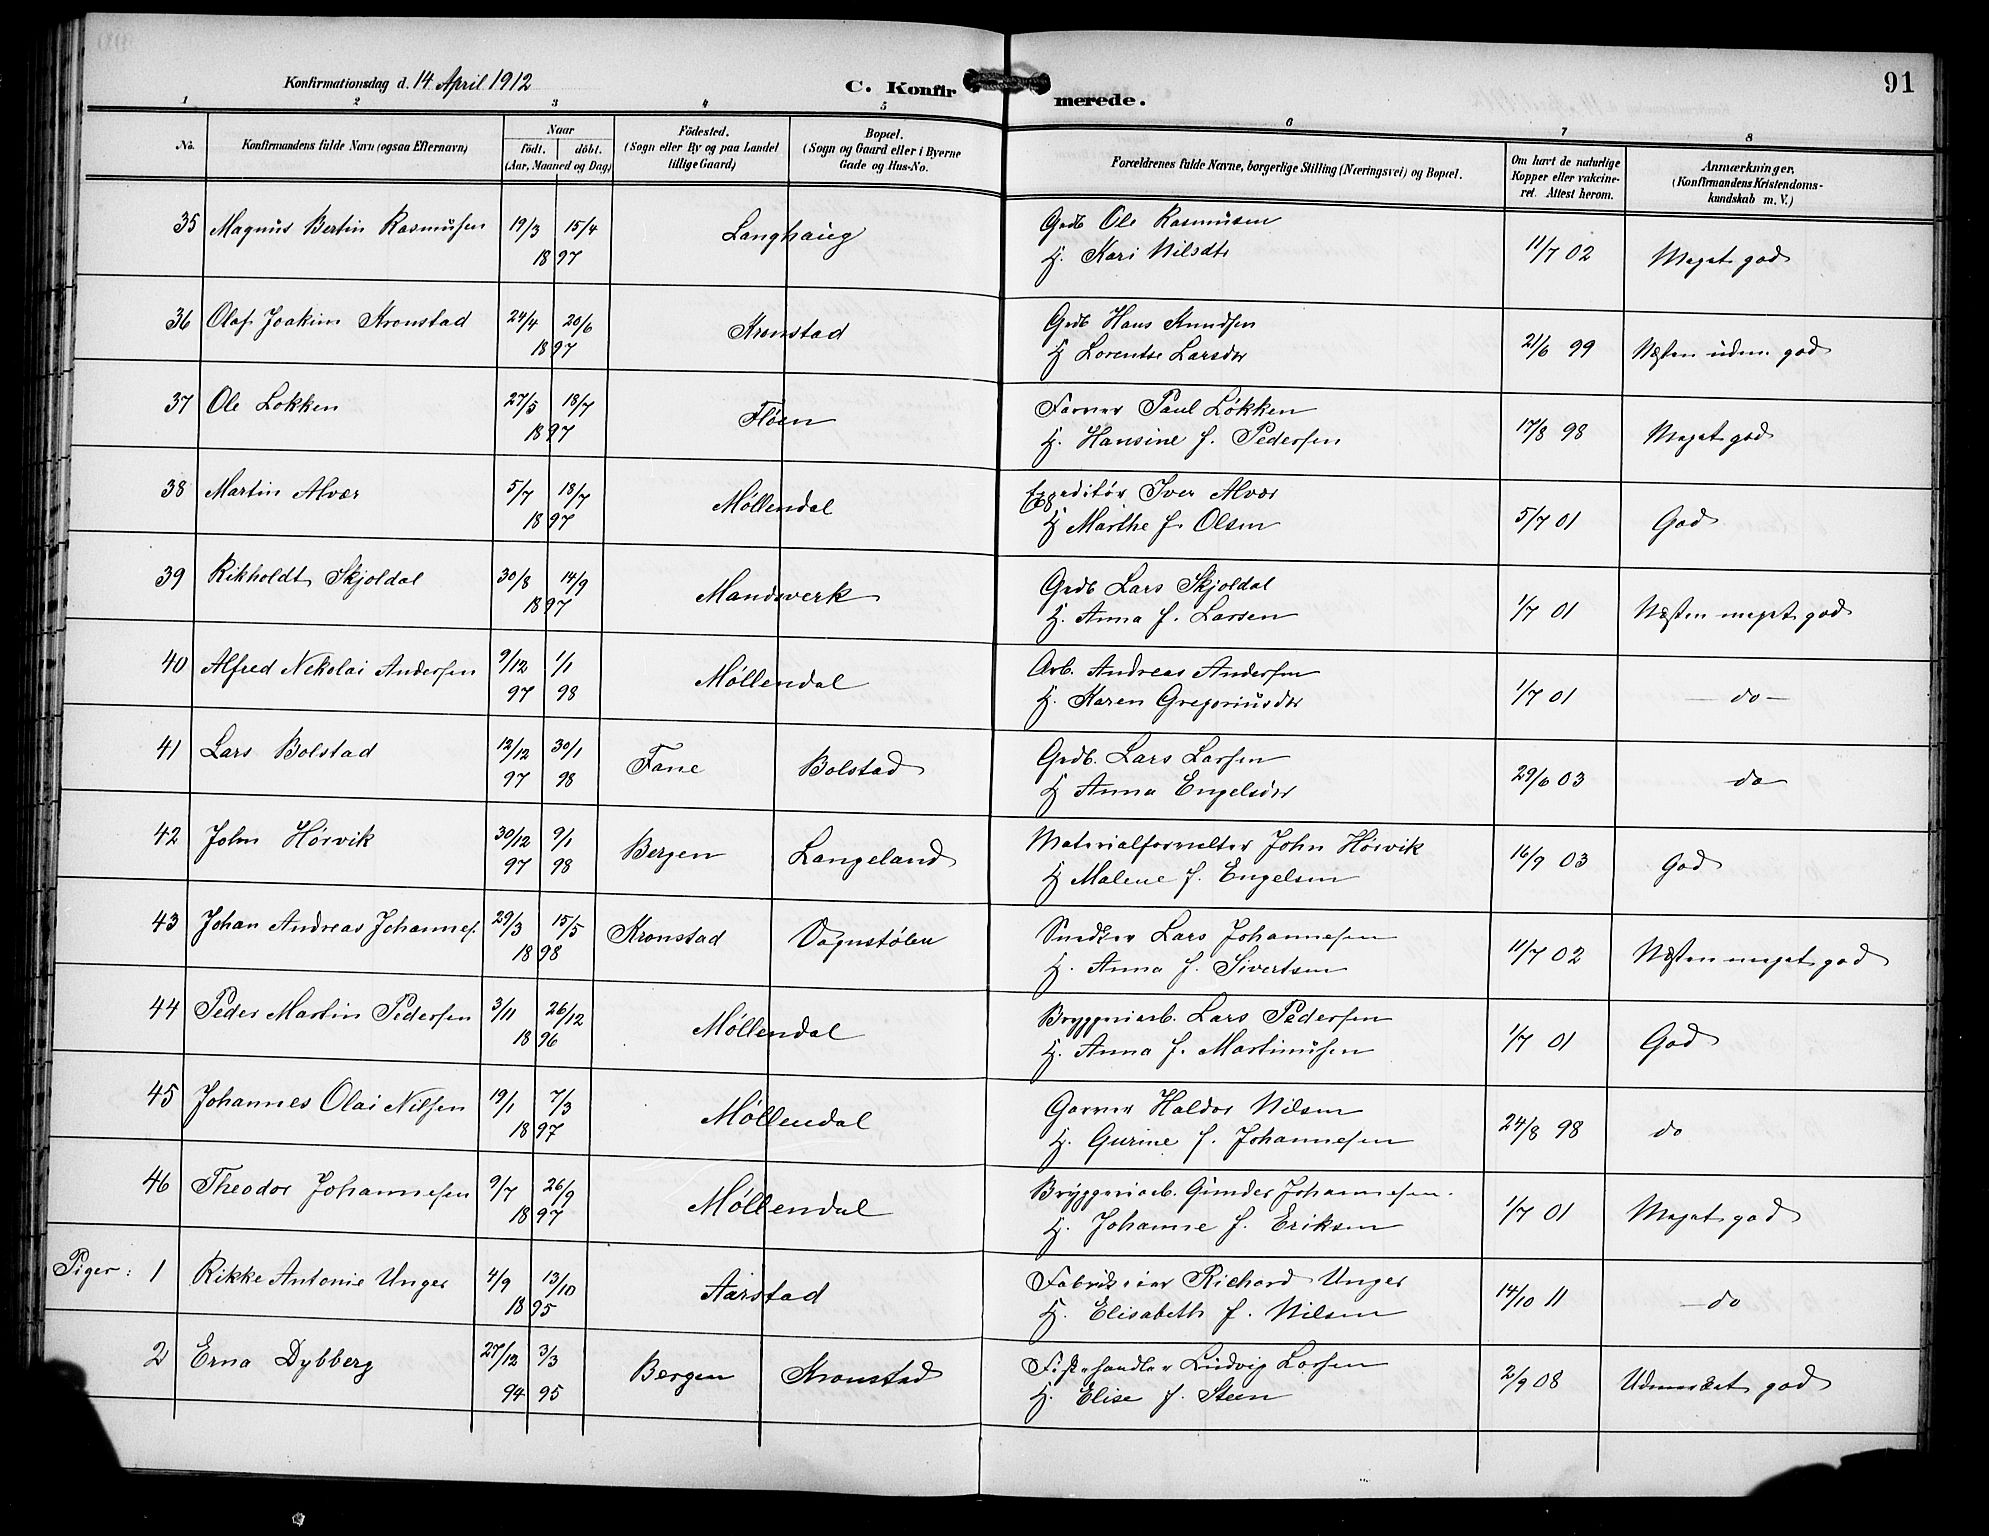 Konfirmationsdag d. 14 April 1912
C. Konfirmerede.
91
1 2 3 4 5 6 7 8
No.
Konfirmandens fulde Navn (ogsaa Efternavn)
Naar
født. døbt.
(Aar, Maaned og Dag)
Födested.
(Sogn eller By og paa Landet
tillige Gaard)
Bopæl.
(Sogn og Gaard eller i Byerne
Gade og Hus-No.
Forældrenes fulde Navne, borgerlige Stilling (Næringsvei) og Bopæl.
Om havt de naturlige
Kopper eller vakcine-
ret. Attest herom.
Anmærkninger.
(Konfirmandens Kristendoms-
kundskab m. V.)
35 Magnus Bertin Rasmussen 19/3 15/4 1897 Langhaug Grdb Ole Rasmussen
H. Kari Nilsdtr 11/7 02 Meget god
36 Olaf Joakim Kronstad 24/4 20/6 1897 Kronstad Grdb Hans Knudsen
H Lorentse Larsdtr 21/6 99 Næsten udm. god
37 Ole Løkken 27/5 18/7 1897 Fløen Farver Paul Løkken
H. Hansine f. Pedersen 17/8 98 Meget god
38 Martin Alvær 5/7 18/7 1897 Møllendal Expeditør Iver Alvær
H Marthe f. Olsen 5/7 01 God
39 Rikholdt Skjoldal 30/8 14/9 1897 Mandsverk Grdb Lars Skjoldal
H. Anna f. Larsen 1/7 01 Næsten meget god
40 Alfred Nekolai Andersen 9/12 97 1/1 98 Møllendal Arb. Andreas Andersen
H. Karen Gregoriusdtr 1/7 01 - do -
41 Lars Bolstad 12/12 97 30/1 98 Fane Bolstad Grdb. Lars Larsen
H Anna Engelsdtr 29/6 03 do
42 John Hørvik 30/12 97 9/1 98 Bergen Langeland Materialforvalter John Hørvik
H Malene f. Engelsen 16/9 03 God
43 Johan Andreas Johannes. 29/3 15/5 1898 Kronstad Vognstølen Snedker Lars Johannesen
H. Anna f. Sivertsen 11/7 02 Næsten meget god
44 Peder Martin Pedersen 3/11 26/12 1896 Møllendal Bryggeriarb. Lars Pedersen
H. Anna f. Martinusen 1/7 01 God
45 Johannes Olai Nilsen 19/1 7/3 1897 Møllendal Garver Haldor Nilsen
H. Gurine f. Johannesen 24/8 98 do
46 Theodor Johannesen 9/7 26/9 1897 Møllendal Bryggeriarb. Gunder Johannesen.
H. Johanne f. Eriksen 1/7 01 Meget god
Piger: 1 Rikke Antonie Unger 4/9 13/10 1895 Aarstad Fabrikeier Richard Unger
H. Elisabeth f. Nilsen 14/10 11 - do
2 Erna Dybberg 27/12 94 3/3 95 Bergen Kronstad Fiskehandler Ludvig Larsen
H. Elise f. Steen 2/9 08 Udmerket god